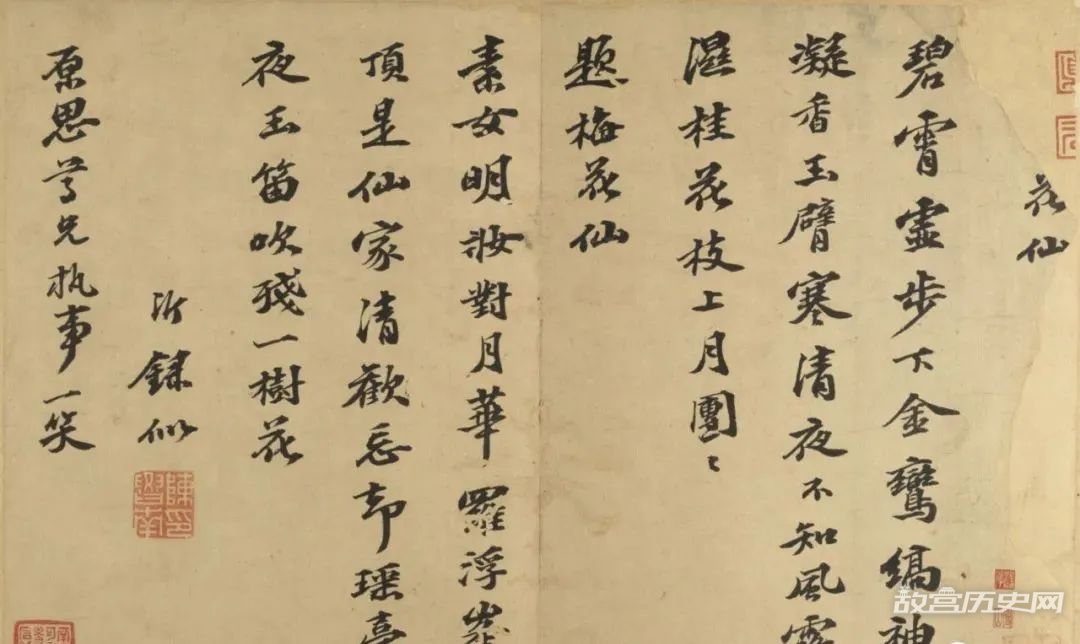 花仙
碧霄虛步下金鸞縞
凝香玉臂寒清夜不知風露
濕桂花枝上月團〻
題梅花仙
素女明妝對月華羅浮
頂是仙家清歡忘却瑤臺
夜玉笛吹殘一樹花
沂錄似
原思尊兄執事一笑
故宫历史网